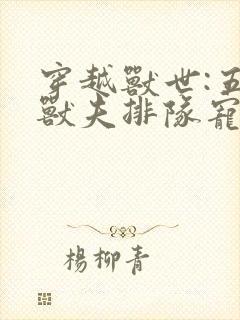 穿越獸世:五
獸夫排隊寵
楊柳青